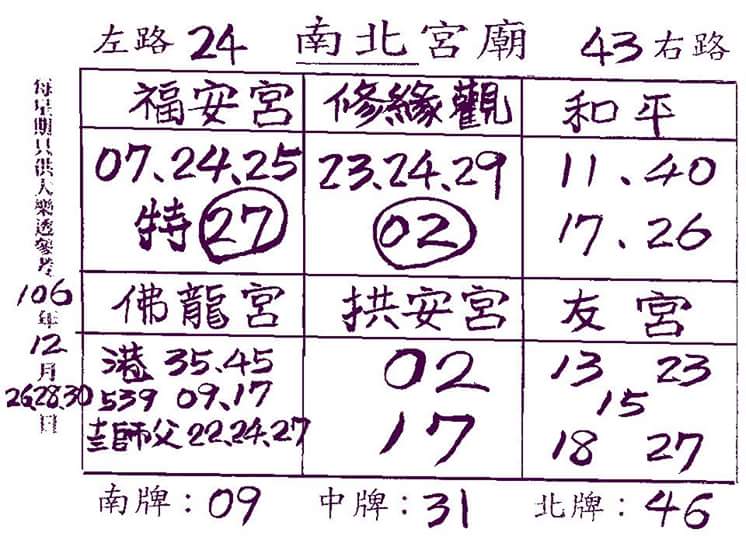 左路 24 南北宮廟 43 右路
每星期只供大樂透參考
106年
12月
26.28.30日
福安宮 修緣觀 和平
07.24.25 23.24.29 11.40
特 27 02 17.26
佛龍宮 拱安宮 友宮
港 35.45 02 13 23
539 09.17 15
師父 22.24.27 17 18 27
南牌：09 中牌：31 北牌：46